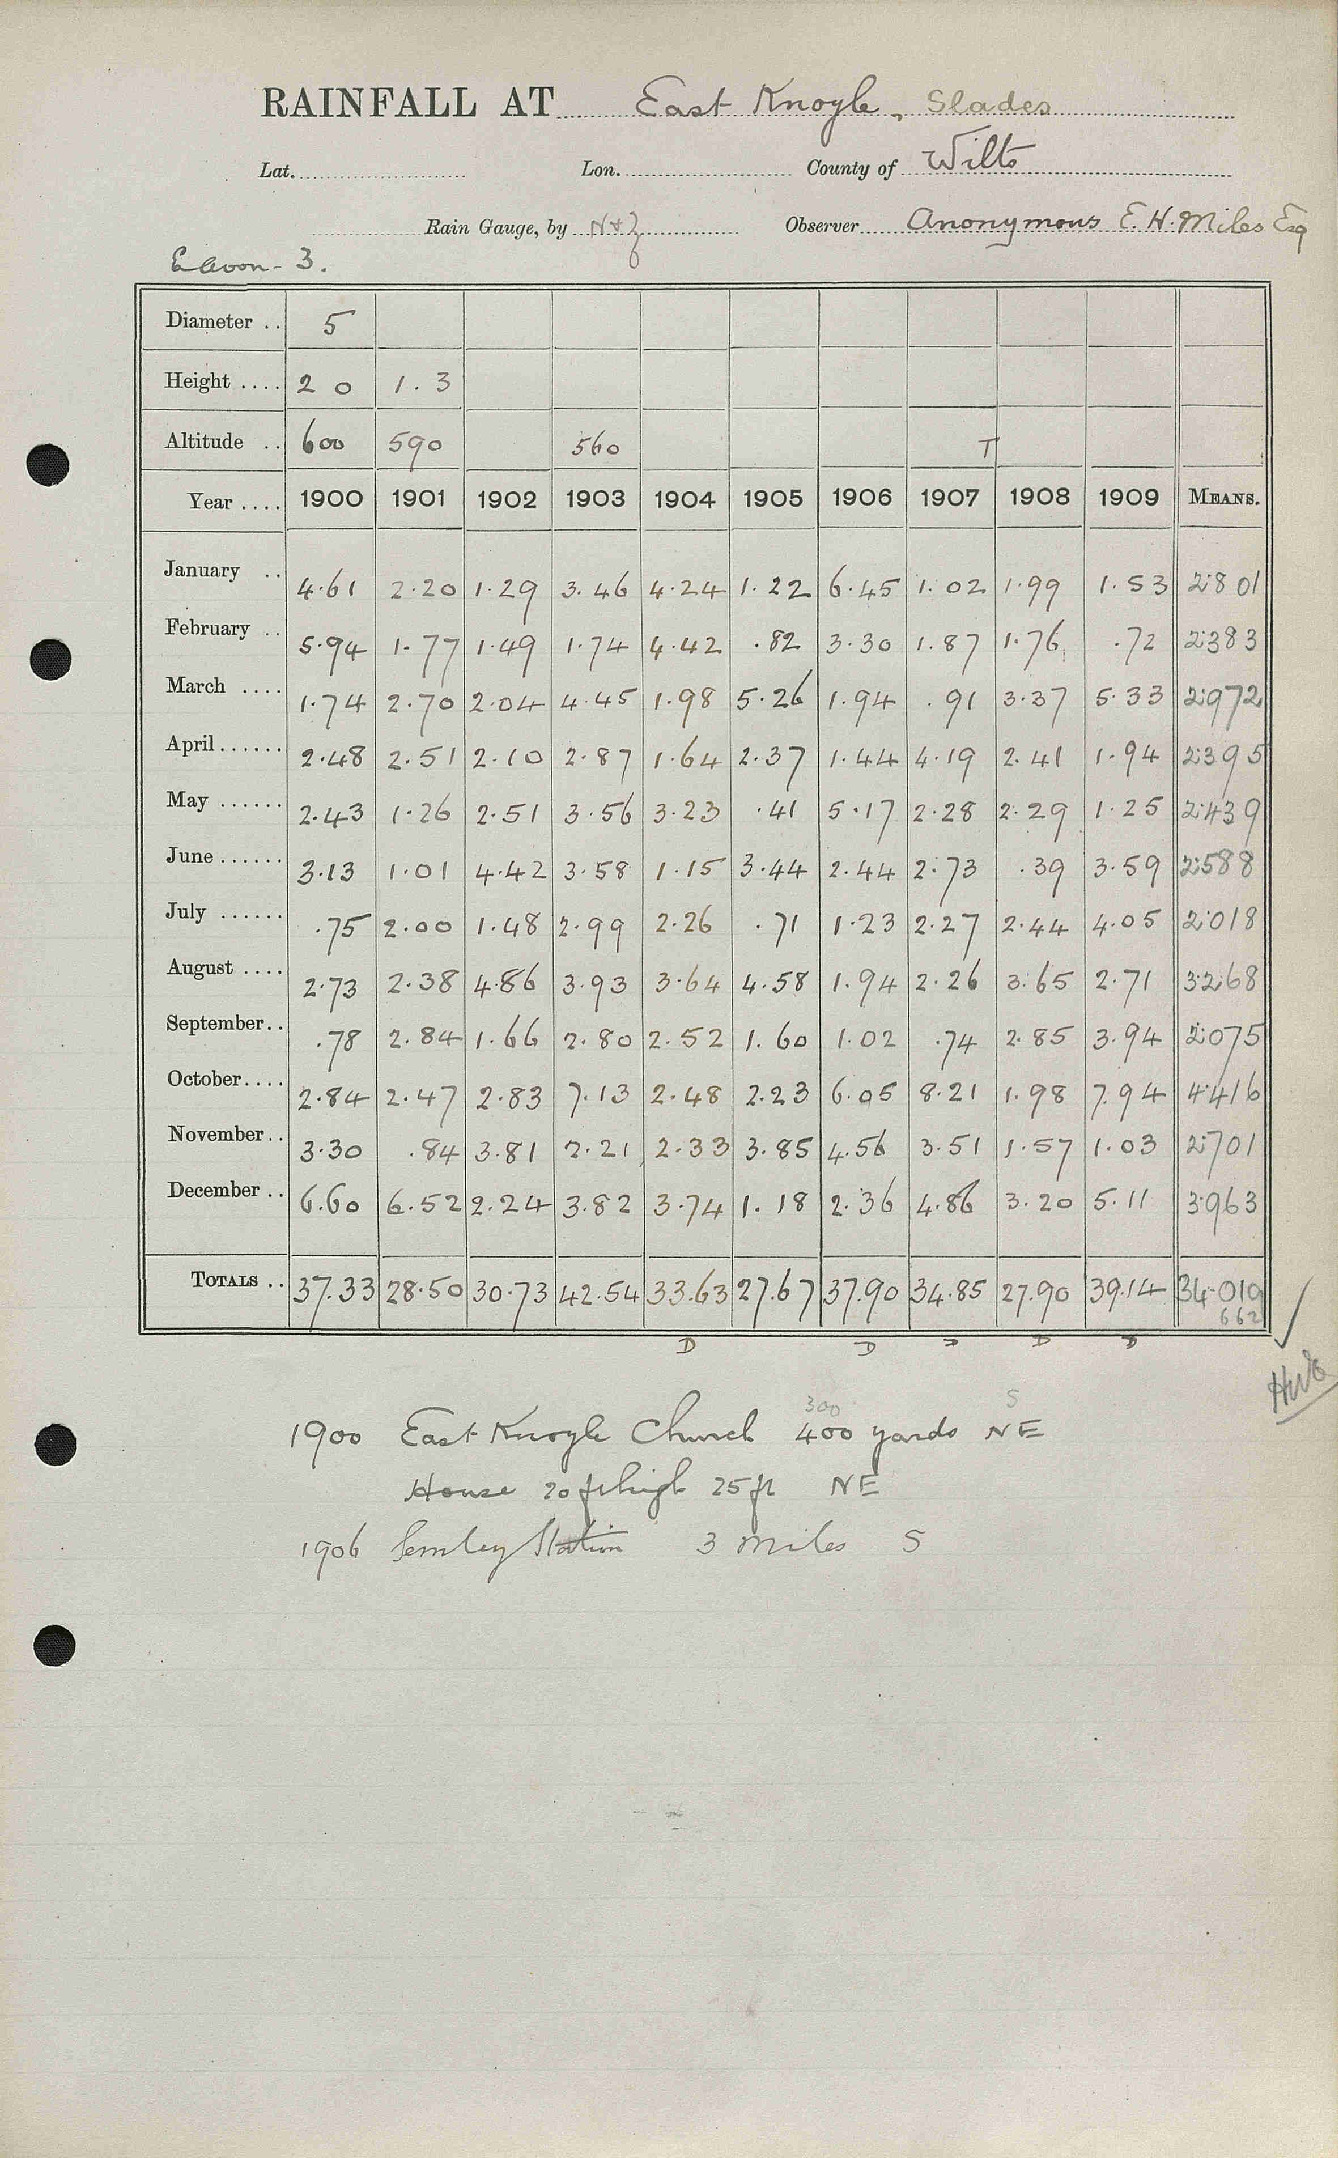 RAINFALL AT East Knoyle, Slades
Lat. Lon. County of Wilts
Rain Gauge, by N & Z Observer Anonymous E. H. Miles Esq
3.
Diameter .. 5
Height .... 2 0 1.3
Altitude .. 600 590 560 T
Year .... 1900 1901 1902 1903 1904 1905 1906 1907 1908 1909 MEANS.
January .. 4.61 2.20 1.29 3.46 4.24 1.22 6.45 1.02 1.99 1.53 2.801
February .. 5.94 1.77 1.49 1.74 4.42 .82 3.30 1.87 1.76 .72 2.383
March .... 1.74 2.70 2.04 4.45 1.98 5.26 1.94 .91 3.37 5.33 2.972
April ...... 2.48 2.51 2.10 2.87 1.64 2.37 1.44 4.19 2.41 1.94 2.395
May ...... 2.43 1.26 2.51 3.56 3.23 .41 5.17 2.28 2.29 1.25 2.439
June ...... 3.13 1.01 4.42 3.58 1.15 3.44 2.44 2.73 .39 3.59 2.588
July ...... .75 2.00 1.48 2.99 2.26 .71 1.23 2.27 2.44 4.05 2.018
August .... 2.73 2.38 4.86 3.93 3.64 4.58 1.94 2.26 3.65 2.71 3.268
September .. .78 2.84 1.66 2.80 2.52 1.60 1.02 .74 2.85 3.94 2.075
October .... 2.84 2.47 2.83 7.13 2.48 2.23 6.05 8.21 1.98 7.94 4.416
November .. 3.30 .84 3.81 2.21 2.33 3.85 4.56 3.51 1.57 1.03 2.701
December .. 6.60 6.52 2.24 3.82 3.74 1.18 2.36 4.86 3.20 5.11 3.963
TOTALS .. 37.33 28.50 30.73 42.54 33.63 27.67 37.90 34.85 27.90 39.14 34.019
662
D D D D D
300 S
1900 East Knoyle Church 400 yards NE
House 20 ft high 25 ft NE
1906 Semley Station 3 Miles S